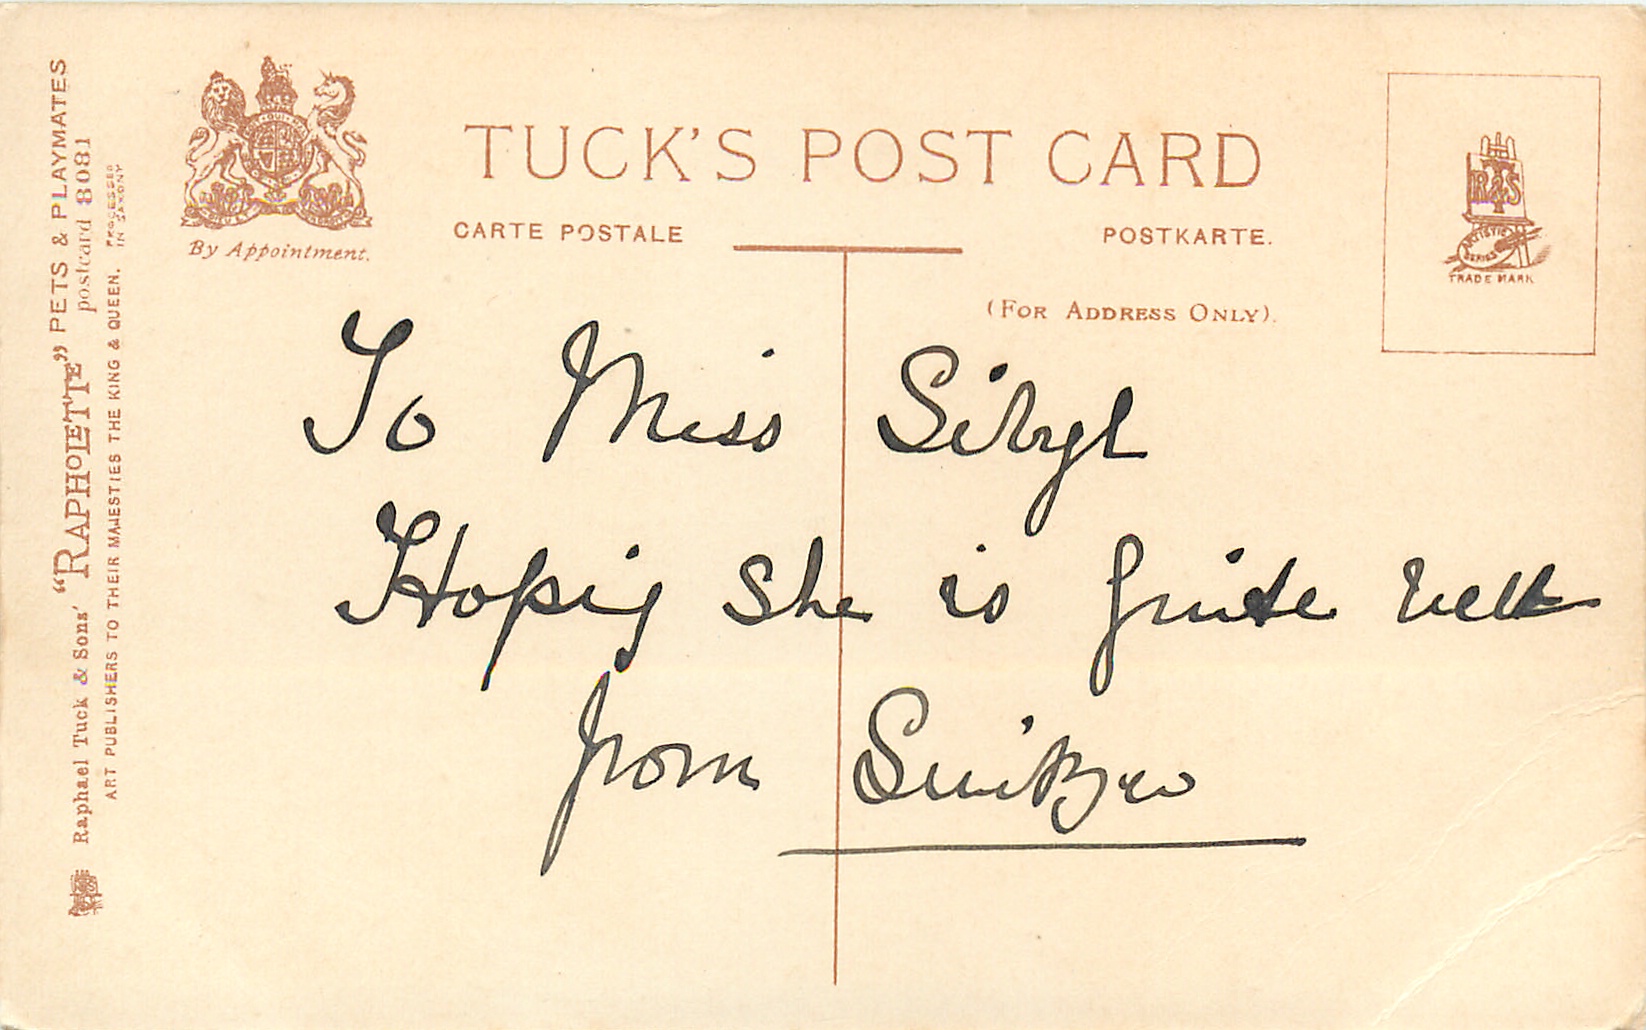 TUCK'S POST CARD
CARTE POSTALE
POSTKARTE.
(FOR ADDRESS ONLY).
By Appointment.
R T S
ARTISTIC SERIES
TRADE MARK
To Miss Sibyl
Hopig she is quite well
from
Raphael Tuck & Sons' "RAPHOLETTE" PETS & PLAYMATES
postcard 8081
ART PUBLISHERS TO THEIR MAJESTIES THE KING & QUEEN.
PROCESSED
IN SAXONY